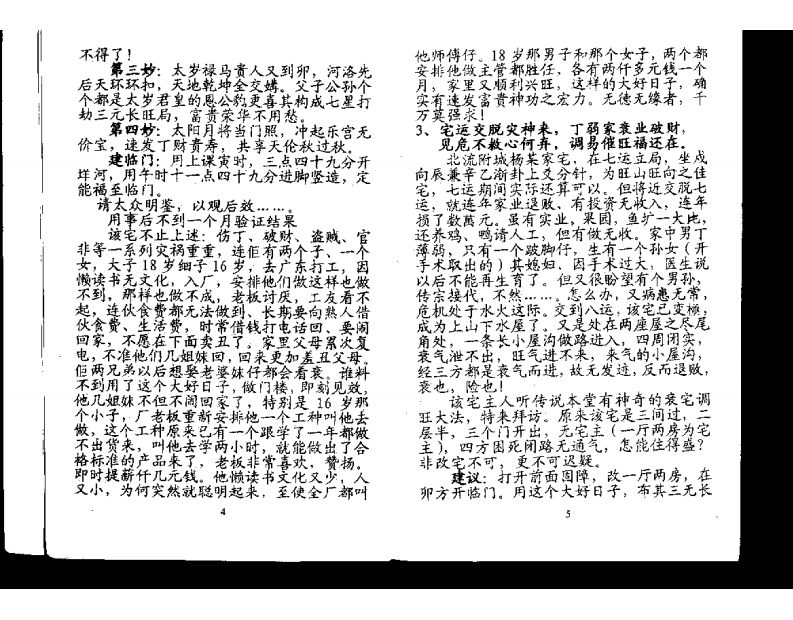 不得了！
第三妙：太岁禄马贵人又到卯，河洛先
后天环环扣，天地乾坤全交媾。父子公孙个
个都是太岁君皇的恩公豹更喜其构成七星打
劫三元长旺局，富贵荣华不用愁。
第四妙：太阳月将当门照，冲起乐宫无
价宝，速发丁财贵寿，共享天伦秋过秋。
建临门：用上课寅时，三点四十九分开
垟河，用午时十一点四十九分进脚竖造，定
能福至临门。
请太众明鉴，以观后效……。
用事后不到一个月验证结果
该宅不止上述：伤丁、破财、盗贼、官
非等一系列灾祸重重，连佢有两个子、一个
女，大子18岁细子16岁，去广东打工，因
懒读书无文化，入厂，安排他们做这样也做
不到，那样也做不成，老板讨厌，工友看不
起，连伙食费都无法做到、长期要向熟人借
伙食费、生活费，时常借钱打电话回、要闹
回家，不愿在下面卖丑了。家里父母累次复
电，不准他们几姐妹回，回来更加羞丑父母。
佢两兄弟以后想娶老婆妹仔都会看衰。谁料
不到用了这个大好日子，做门楼，即刻见效，
他几姐妹不但不闹回家了，特别是 16 岁那
个小子，厂老板重新安排他一个工种叫他去
做，这个工种原来已有一个跟学了一年都做
不出货来，叫他去学两小时，就能做出了合
格标准的产品来了，老板非常喜欢，赞扬。
即时提薪仟几元钱。他懒读书文化又少，人
又小，为何突然就聪明起来，至使全厂都叫
4
他师傅仔。18 岁那男子和那个女子，两个都
安排他做主管都胜任，各有两仟多元钱一个
月，家里又顺利兴旺，这样的大好日子，确
实有速发富贵神功之宏力。无德无缘者，千
万莫强求！
3、宅运交脱灾神来，丁弱家衰业破财，
见危不救心何弃，调易催旺福还在。
北流附城杨某家宅，在七运立局，坐戌
向辰兼辛乙渐卦上爻分针，为旺山旺向之佳
宅，七运期间实际还算可以。但将近交脱七
运，就连年家业退败、有投资无收入，连年
损了数萬元。虽有实业，果园，鱼圹一大坵，
还养鸡、鸭请人工，但有做无收。家中男丁
薄弱，只有一个跛脚仔，生有一个孙女（开
手术取出的）其媳妇、因手术过大，医生说
以后不能再生育了。但又很盼望有个男孙，
传宗接代，不然……。怎么办，又病患无常，
危机处于水火这际。交到八运，该宅已变极，
成为上山下水屋了。又是处在两座屋之尽尾
角处，一条长小屋沟做路进入，四周闭实，
衰气泄不出，旺气进不来，来气的小屋沟，
经三方都是衰气而进，故无发迹，反而退败，
衰也，险也！
该宅主人听传说本堂有神奇的衰宅调
旺大法，特来拜访。原来该宅是三间过，二
层半，三个门开出，无宅主（一厅两房为宅
主），四方困死闭路无通气，怎能住得盛？
非改宅不可，更不可迟疑。
建议：打开前面围障，改一厅两房，在
卯方开临门。用这个大好日子，布其三无长
5